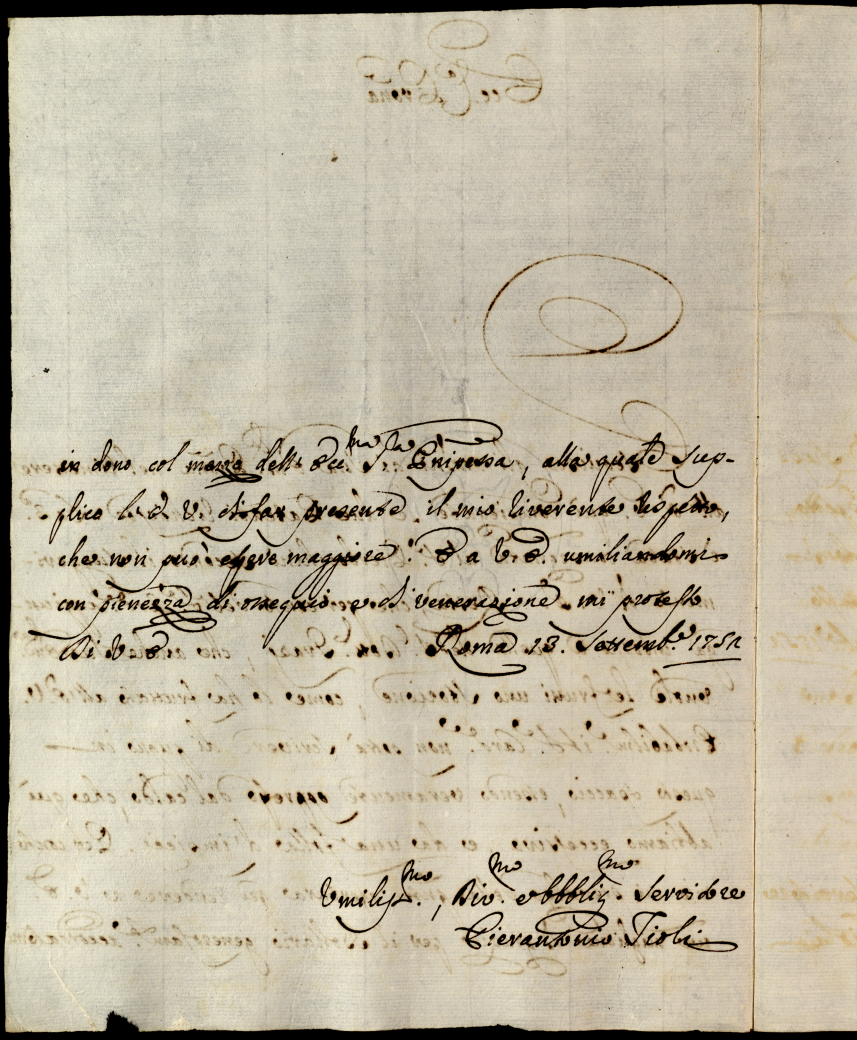 in dono col mezzo dell' Ecc.ma S.ra P'nipessa, alla quale sup-
plico la E. V. di far presente il mio riverente rispetto,
che non può essere maggiore: E a V. E. umiliandomi
con pienezza di ossequio e di venerazione mi protesto
Di V. E. Roma 13. Settemb.e 1751
Umiliss.mo, Div.mo obbblig.mo Servidore
Pierantonio Tioli